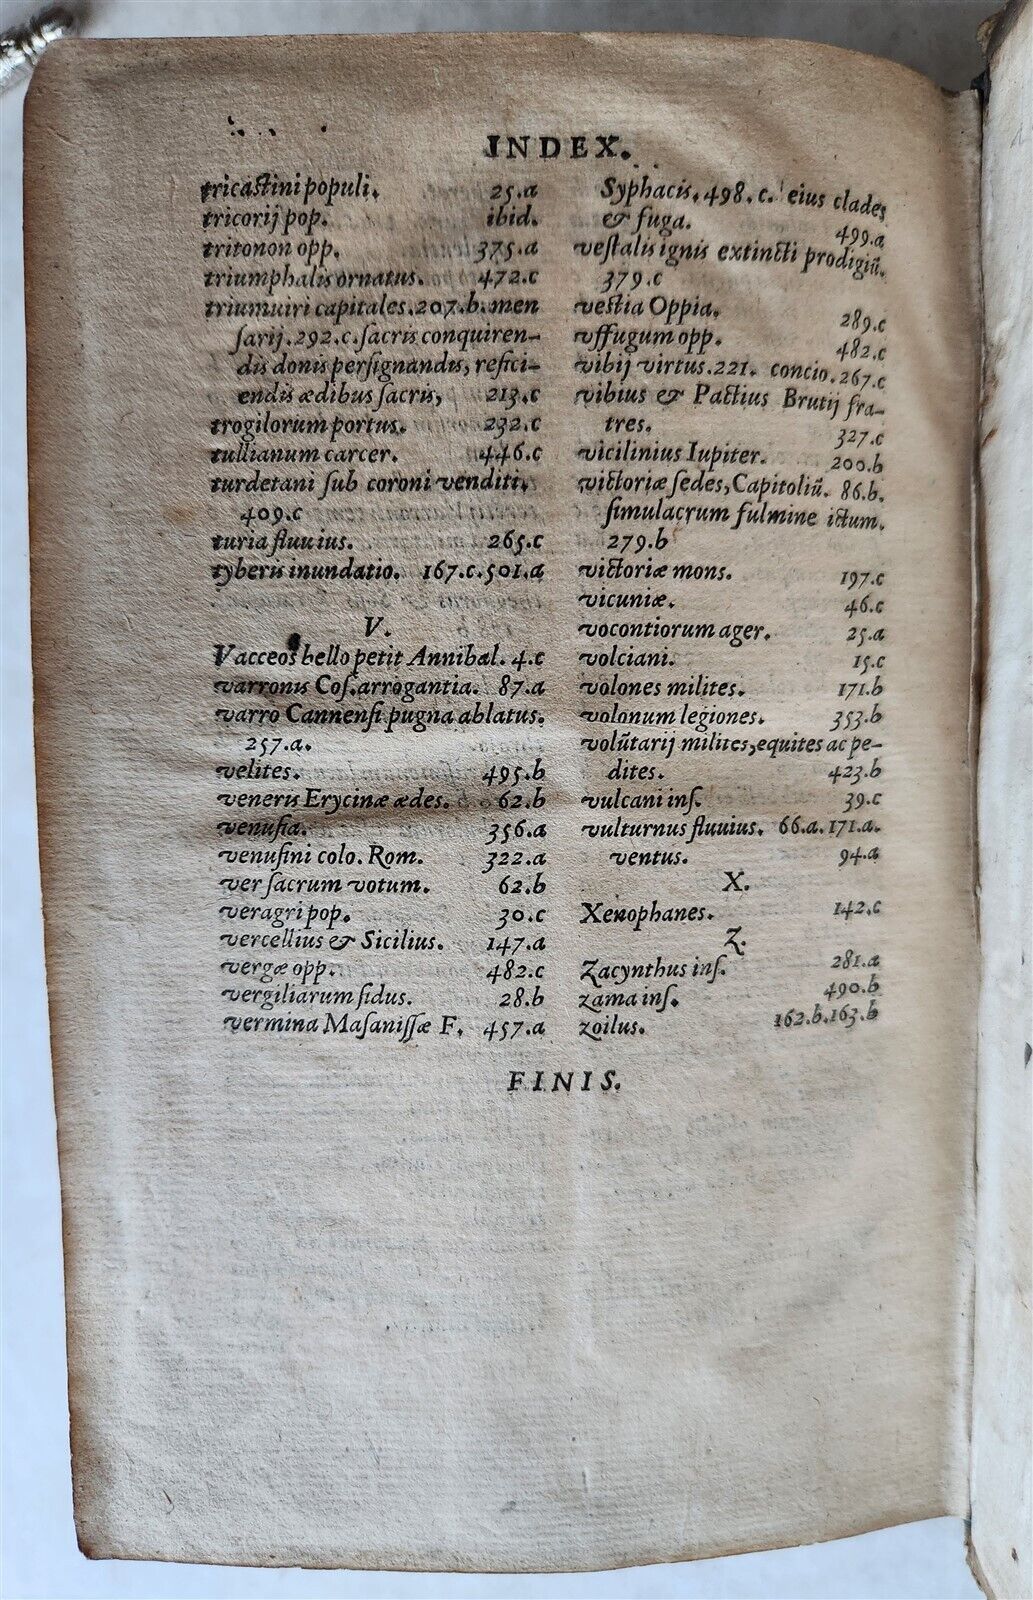 INDEX.
tricastini populi. 25.a
tricorij pop. ibid.
tritonon opp. 375.a
triumphalis ornatus. 472.c
triumuiri capitales.207.b.men
sarij.292.c.sacris conquiren-
dis donis persignandis, refici-
endis ædibus sacris, 213.c
trogilorum portus. 232.c
tullianum carcer. 446.c
turdetani sub coroni venditi.
409.c
turia fluuius. 265.c
tyberis inundatio. 167.c.501.a
V.
Vacceos bello petit Annibal. 4.c
varronis Cos.arrogantia. 87.a
varro Cannensi pugna ablatus.
257.a.
velites. 495.b
veneris Erycinæ ædes. 62.b
venusia. 356.a
venusini colo. Rom. 322.a
ver sacrum votum. 62.b
veragri pop. 30.c
vercellius & Sicilius. 147.a
vergæ opp. 482.c
vergiliarum sidus. 28.b
vermina Masanissæ F. 457.a
Syphacis.498.c. eius clades
& fuga. 499.a
vestalis ignis extincti prodigiũ.
379.c
vestia Oppia. 289.c
vffugum opp. 482.c
vibij virtus.221. concio.267.c
vibius & Pactius Brutij fra-
tres. 327.c
vicilinius Iupiter. 200.b
victoriæ sedes, Capitoliũ. 86.b.
simulacrum fulmine ictum.
279.b
victoriæ mons. 197.c
vicuniæ. 46.c
vocontiorum ager. 25.a
volciani. 15.c
volones milites. 171.b
volonum legiones. 353.b
volũtarij milites, equites ac pe-
dites. 423.b
vulcani ins. 39.c
vulturnus fluuius. 66.a.171.a.
ventus. 94.a
X.
Xenophanes. 142.c
Z.
Zacynthus ins. 281.a
zama ins. 490.b
zoilus. 162.b.163.b
FINIS.